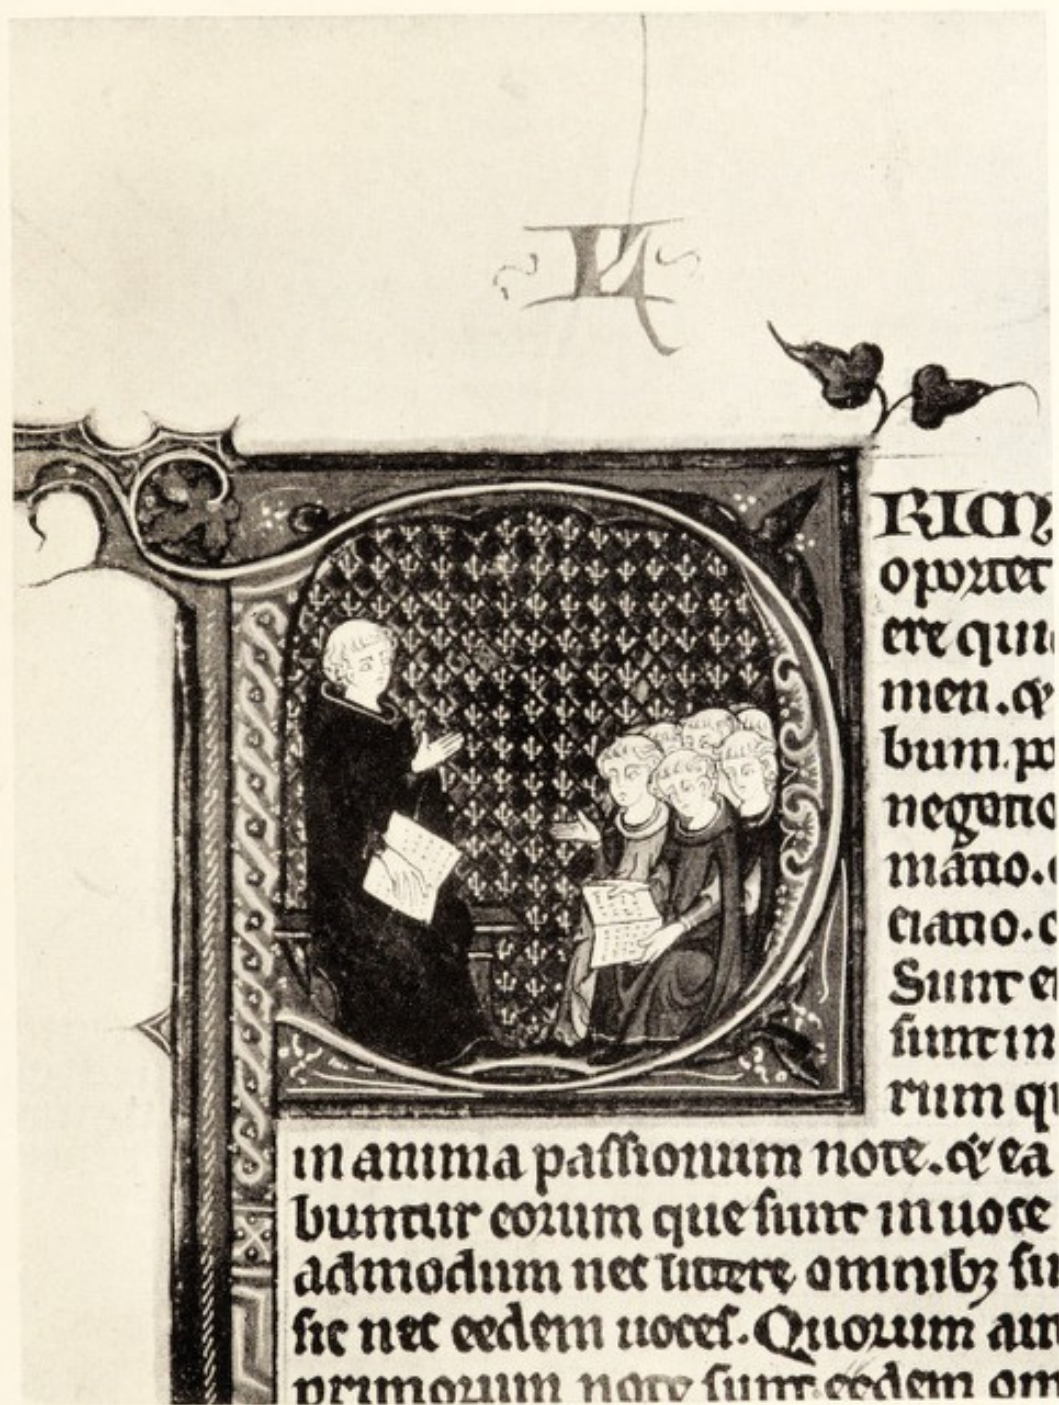 PRIM
oportet
ere qui
men. &
bum. po
negatio
matio. e
ciatio. o
Sunt er
sunt in
rum qu
in anima passionum note. & ea
buntur eorum que sunt in uoce
admodum nec littere omnibꝫ
sic nec eedem uoces. Quorum aut
primorum note sunt eedem om